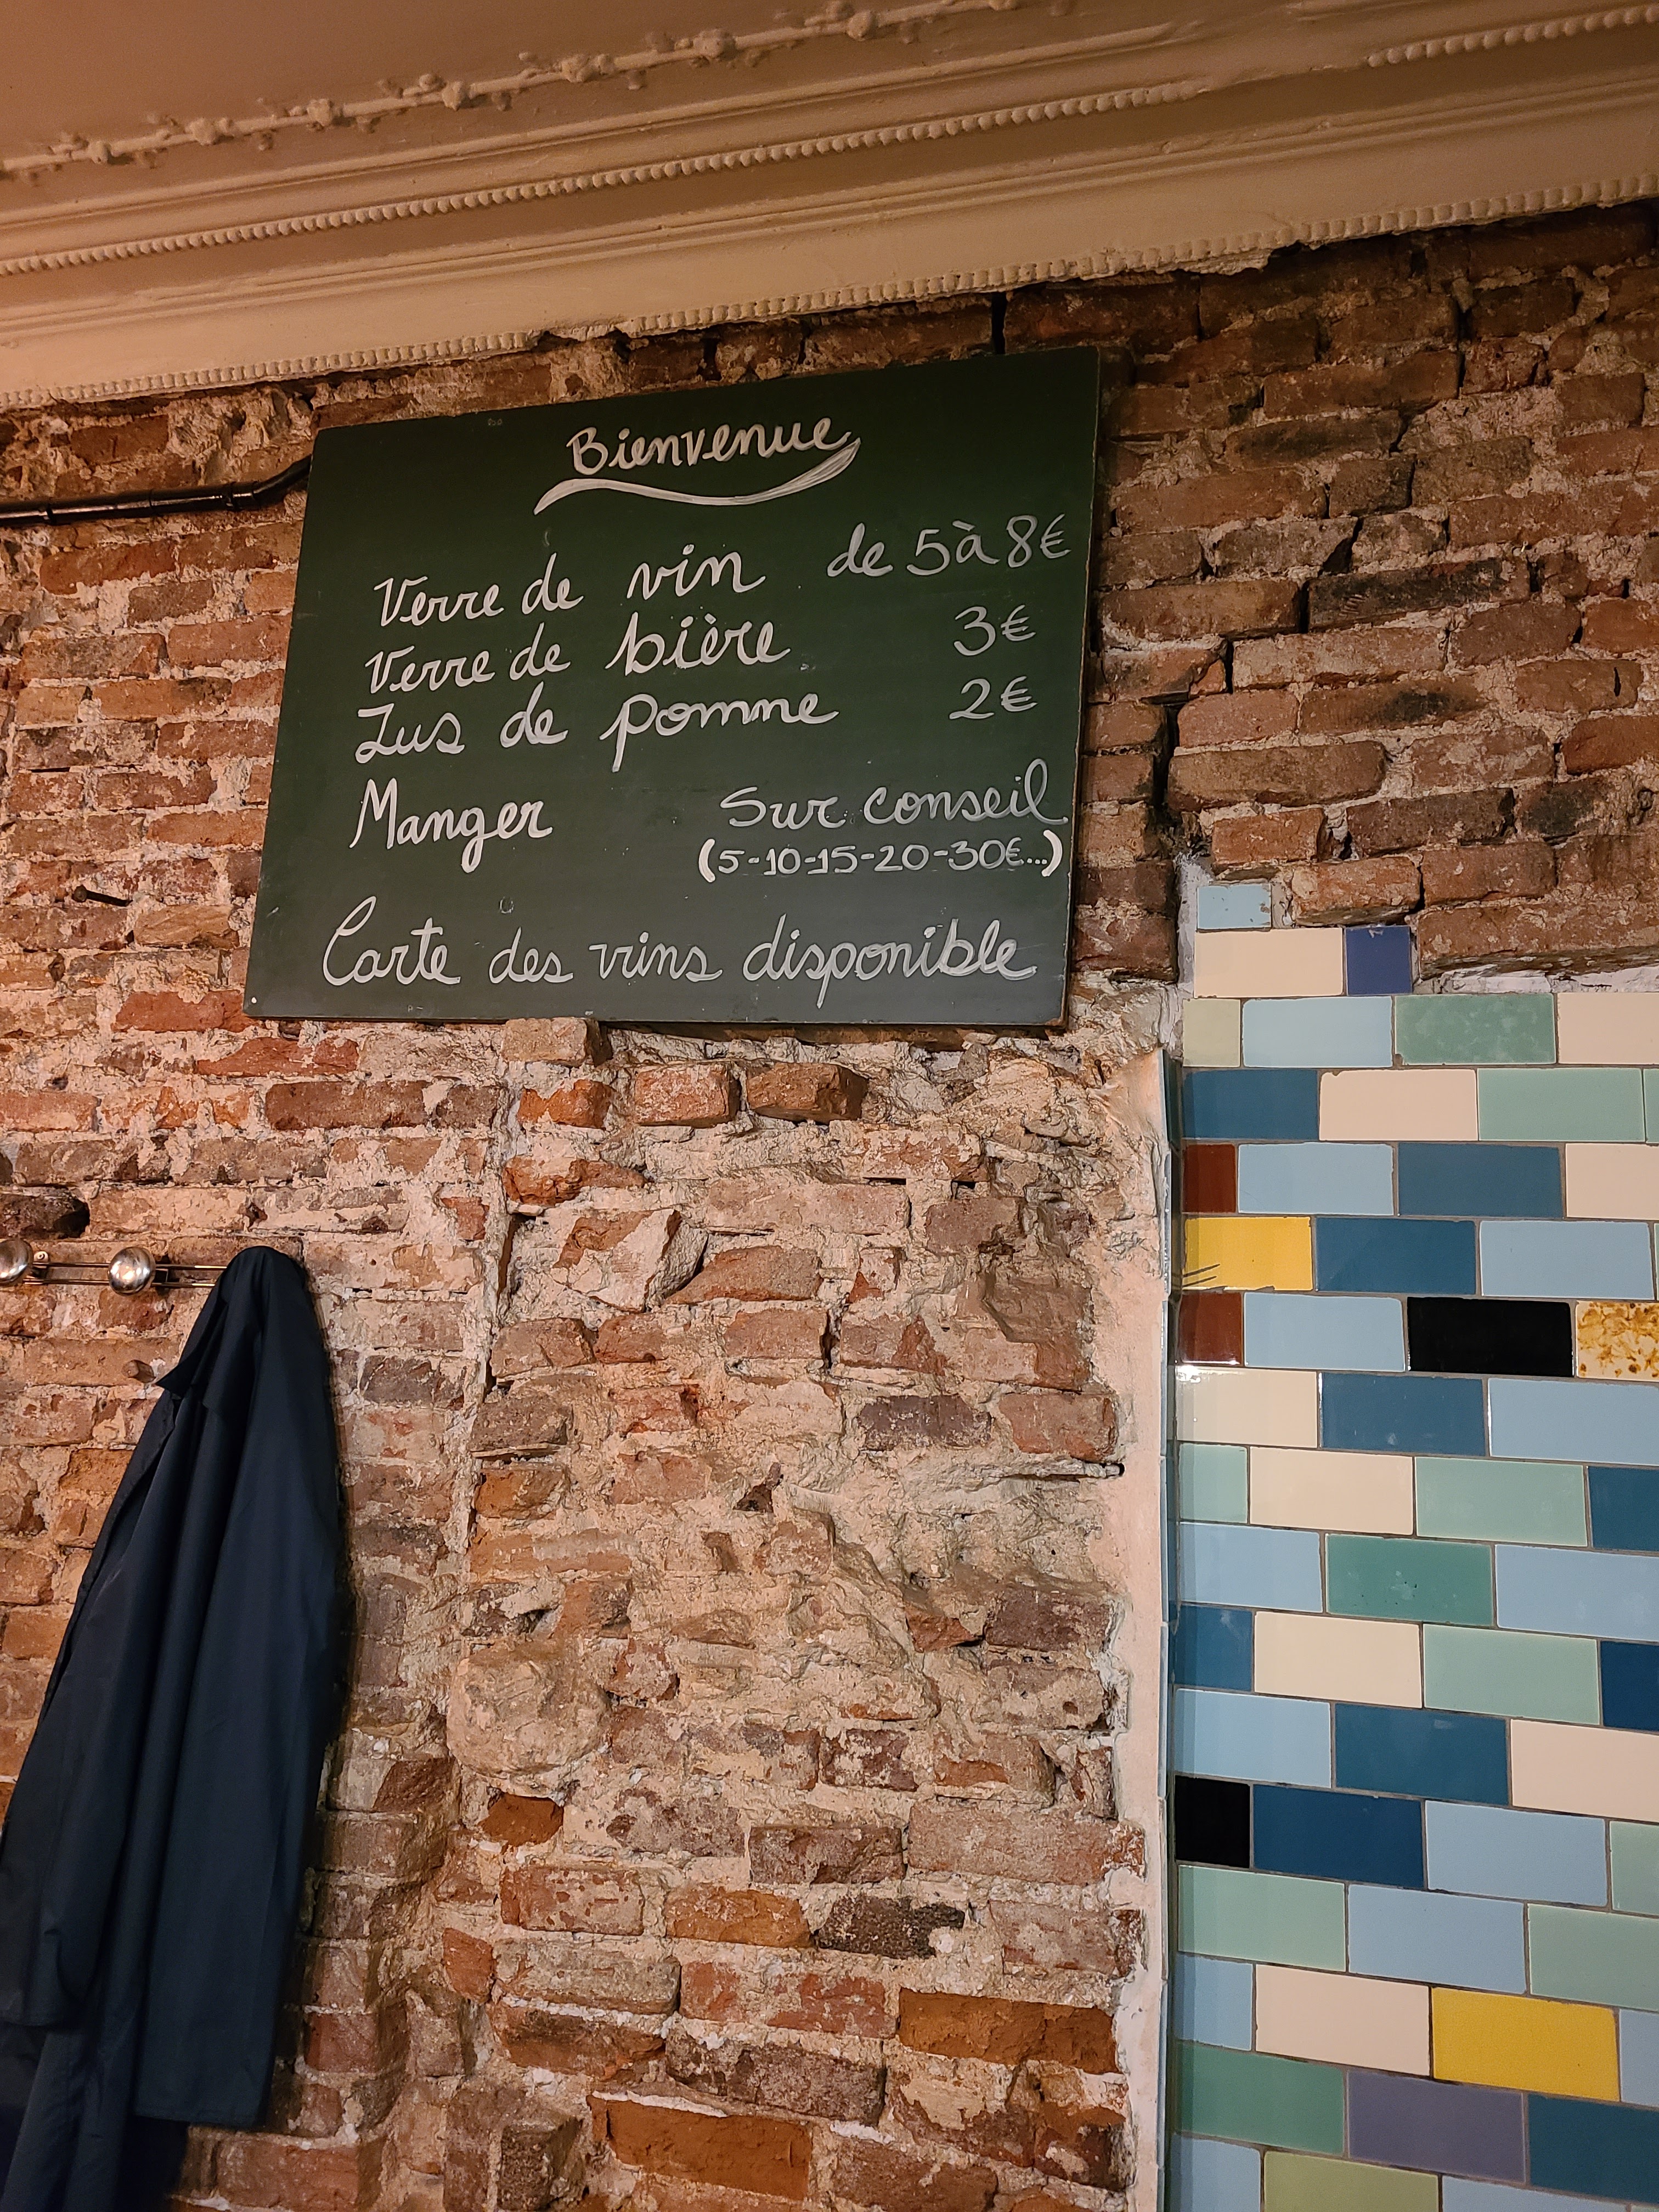 Bienvenue
Verre de vin de 5 à 8€
Verre de bière 3€
Jus de pomme 2€
Manger Sur conseil
(5-10-15-20-30€...)
Carte des vins disponible